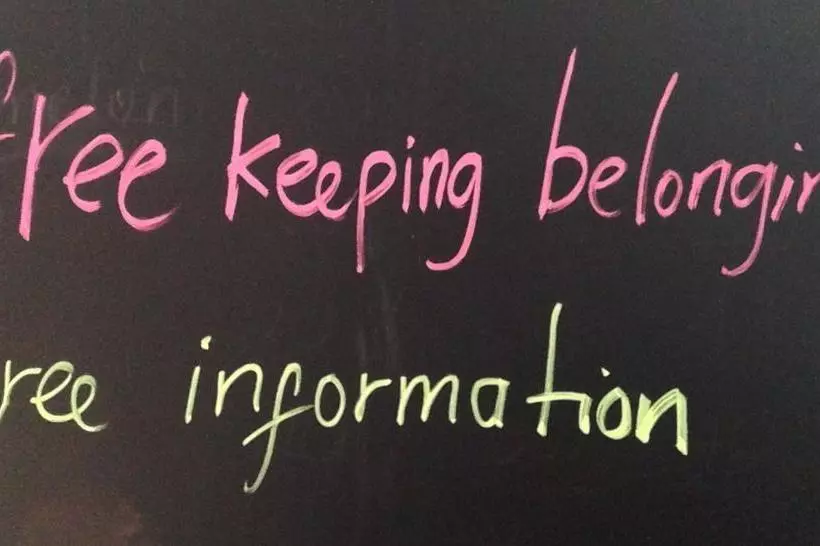 free keeping belongin
ree information